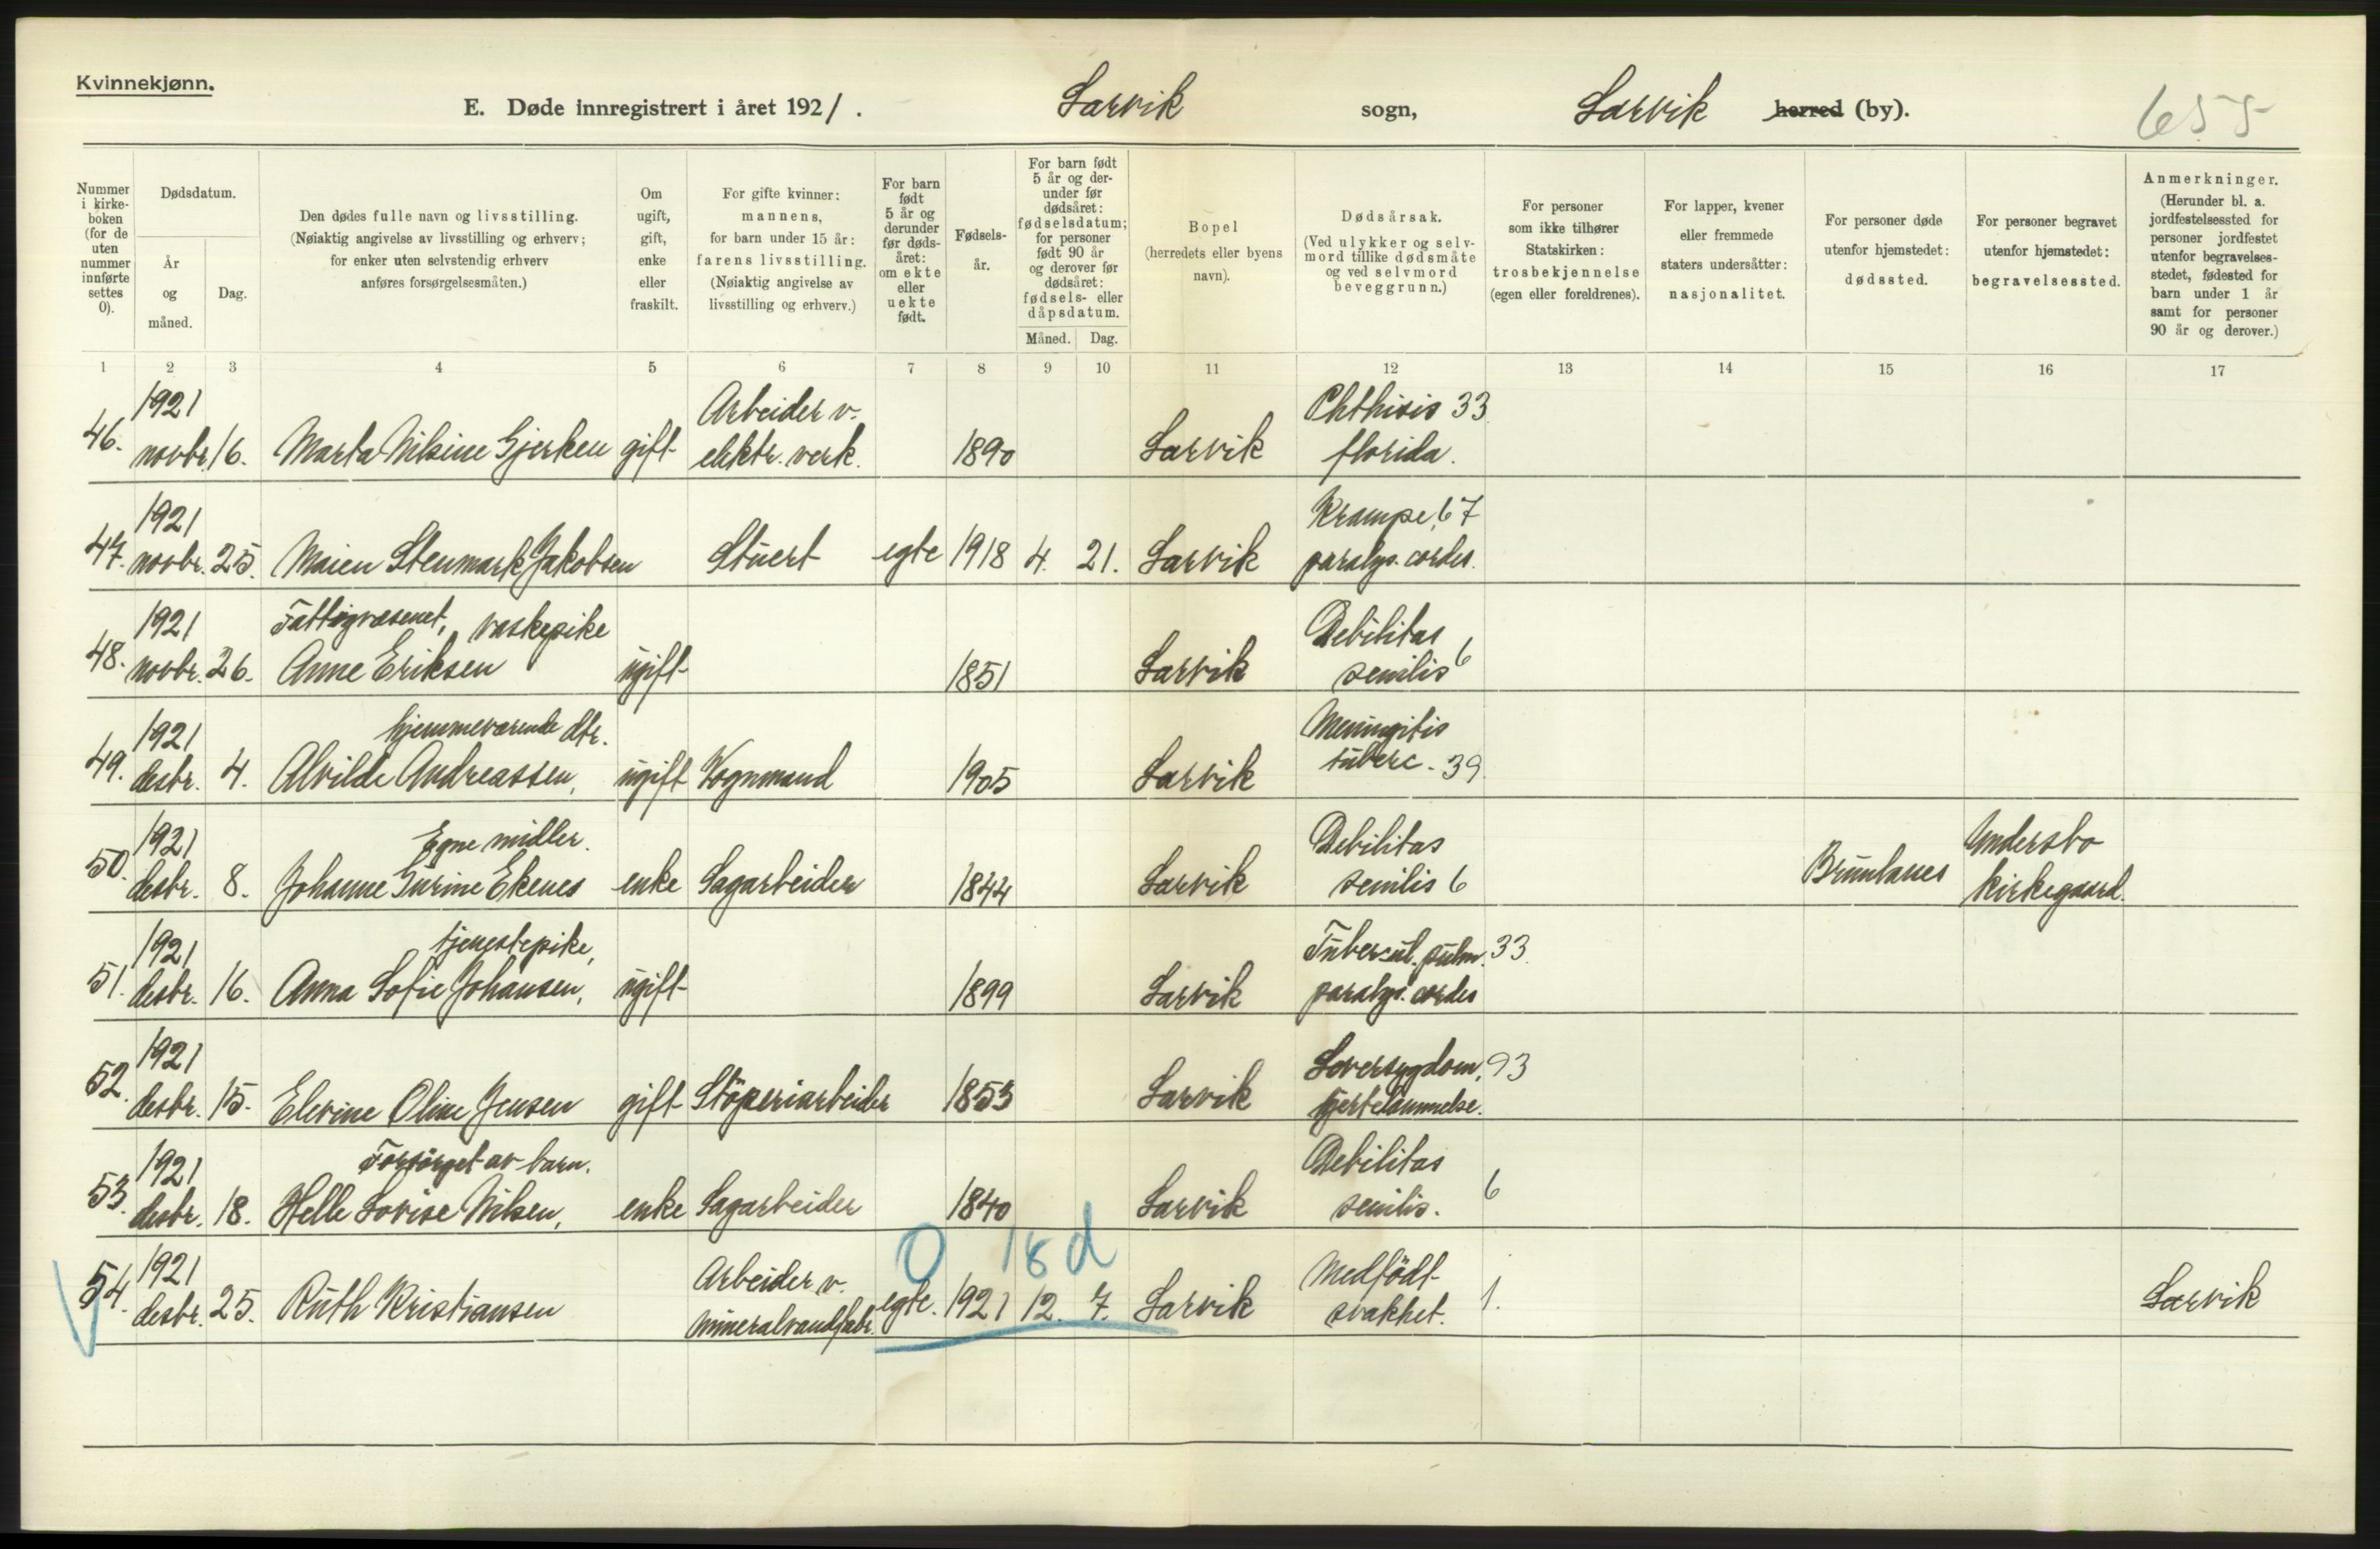 Kvinnekjønn.
E. Døde innregistrert i året 1921. Larvik sogn, Larvik herred (by). 655
Nummer i kirke-boken (for de uten nummer innførte settes 0).
Dødsdatum.
År og måned.
Dag.
Den dødes fulle navn og livsstilling.
(Nøiaktig angivelse av livsstilling og erhverv; for enker uten selvstendig erhverv anføres forsørgelsesmåten.)
Om ugift, gift, enke eller fraskilt.
For gifte kvinner: mannens, for barn under 15 år: farens livsstilling. (Nøiaktig angivelse av livsstilling og erhverv.)
For barn født 5 år og derunder før dødsåret: om ekte eller uekte født.
Fødselsår.
For barn født 5 år og derunder før dødsåret: fødselsdatum; for personer født 90 år og derover før dødsåret: fødsels- eller dåpsdatum.
Måned. Dag.
Bopel (herredets eller byens navn).
Dødsårsak. (Ved ulykker og selvmord tillike dødsmåte og ved selvmord beveggrunn.)
For personer som ikke tilhører Statskirken: trosbekjennelse (egen eller foreldrenes).
For lapper, kvener eller fremmede staters undersåtter: nasjonalitet.
For personer døde utenfor hjemstedet: dødssted.
For personer begravet utenfor hjemstedet: begravelsessted.
Anmerkninger. (Herunder bl. a. jordfestelsessted for personer jordfestet utenfor begravelsesstedet, fødested for barn under 1 år samt for personer 90 år og derover.)
1 2 3 4 5 6 7 8 9 10 11 12 13 14 15 16 17
1921 Arbeider v. Phthisis 33
46. novbr. 16. Marta Nilsine Gjerken gift elektr. verk. 1890 Larvik florida.
1921 Krampe, 67
47. novbr. 25. Maien Stenmark Jakobsen Stuert egte 1918 4. 21. Larvik paralys. cordis.
1921 Fattigvæsenet, vaskepike Debilitas
48. novbr. 26. Anne Eriksen ugift 1851 Larvik senilis 6
1921 hjemmeværende dtr. Meningitis
49. desbr. 4. Alvilde Andreassen, ugift Vognmand 1905 Larvik tuberc. 39.
1921 Egne midler. Debilitas Undersbo
50. desbr. 8. Johanne Gurine Ekenes enke Sagarbeider 1844 Larvik senilis 6 Brunlanes kirkegaard.
1921 tjenestepike, Tubercul. pulm. 33.
51. desbr. 16. Anna Sofie Johansen, ugift 1899 Larvik paralys. cordis
1921 Leversygdom, 93
52. desbr. 15. Elevine Oline Jensen gift Støperiarbeider 1853 Larvik hjertelammelse.
1921 Forsørget av barn. Debilitas
53. desbr. 18. Helle Lovise Nilsen, enke Sagarbeider 1840 Larvik senilis. 6
0 18 d
1921 Arbeider v. Medfødt
54. desbr. 25. Ruth Kristiansen mineralvandfabr. egte. 1921 12. 7. Larvik svakhet. 1. Larvik